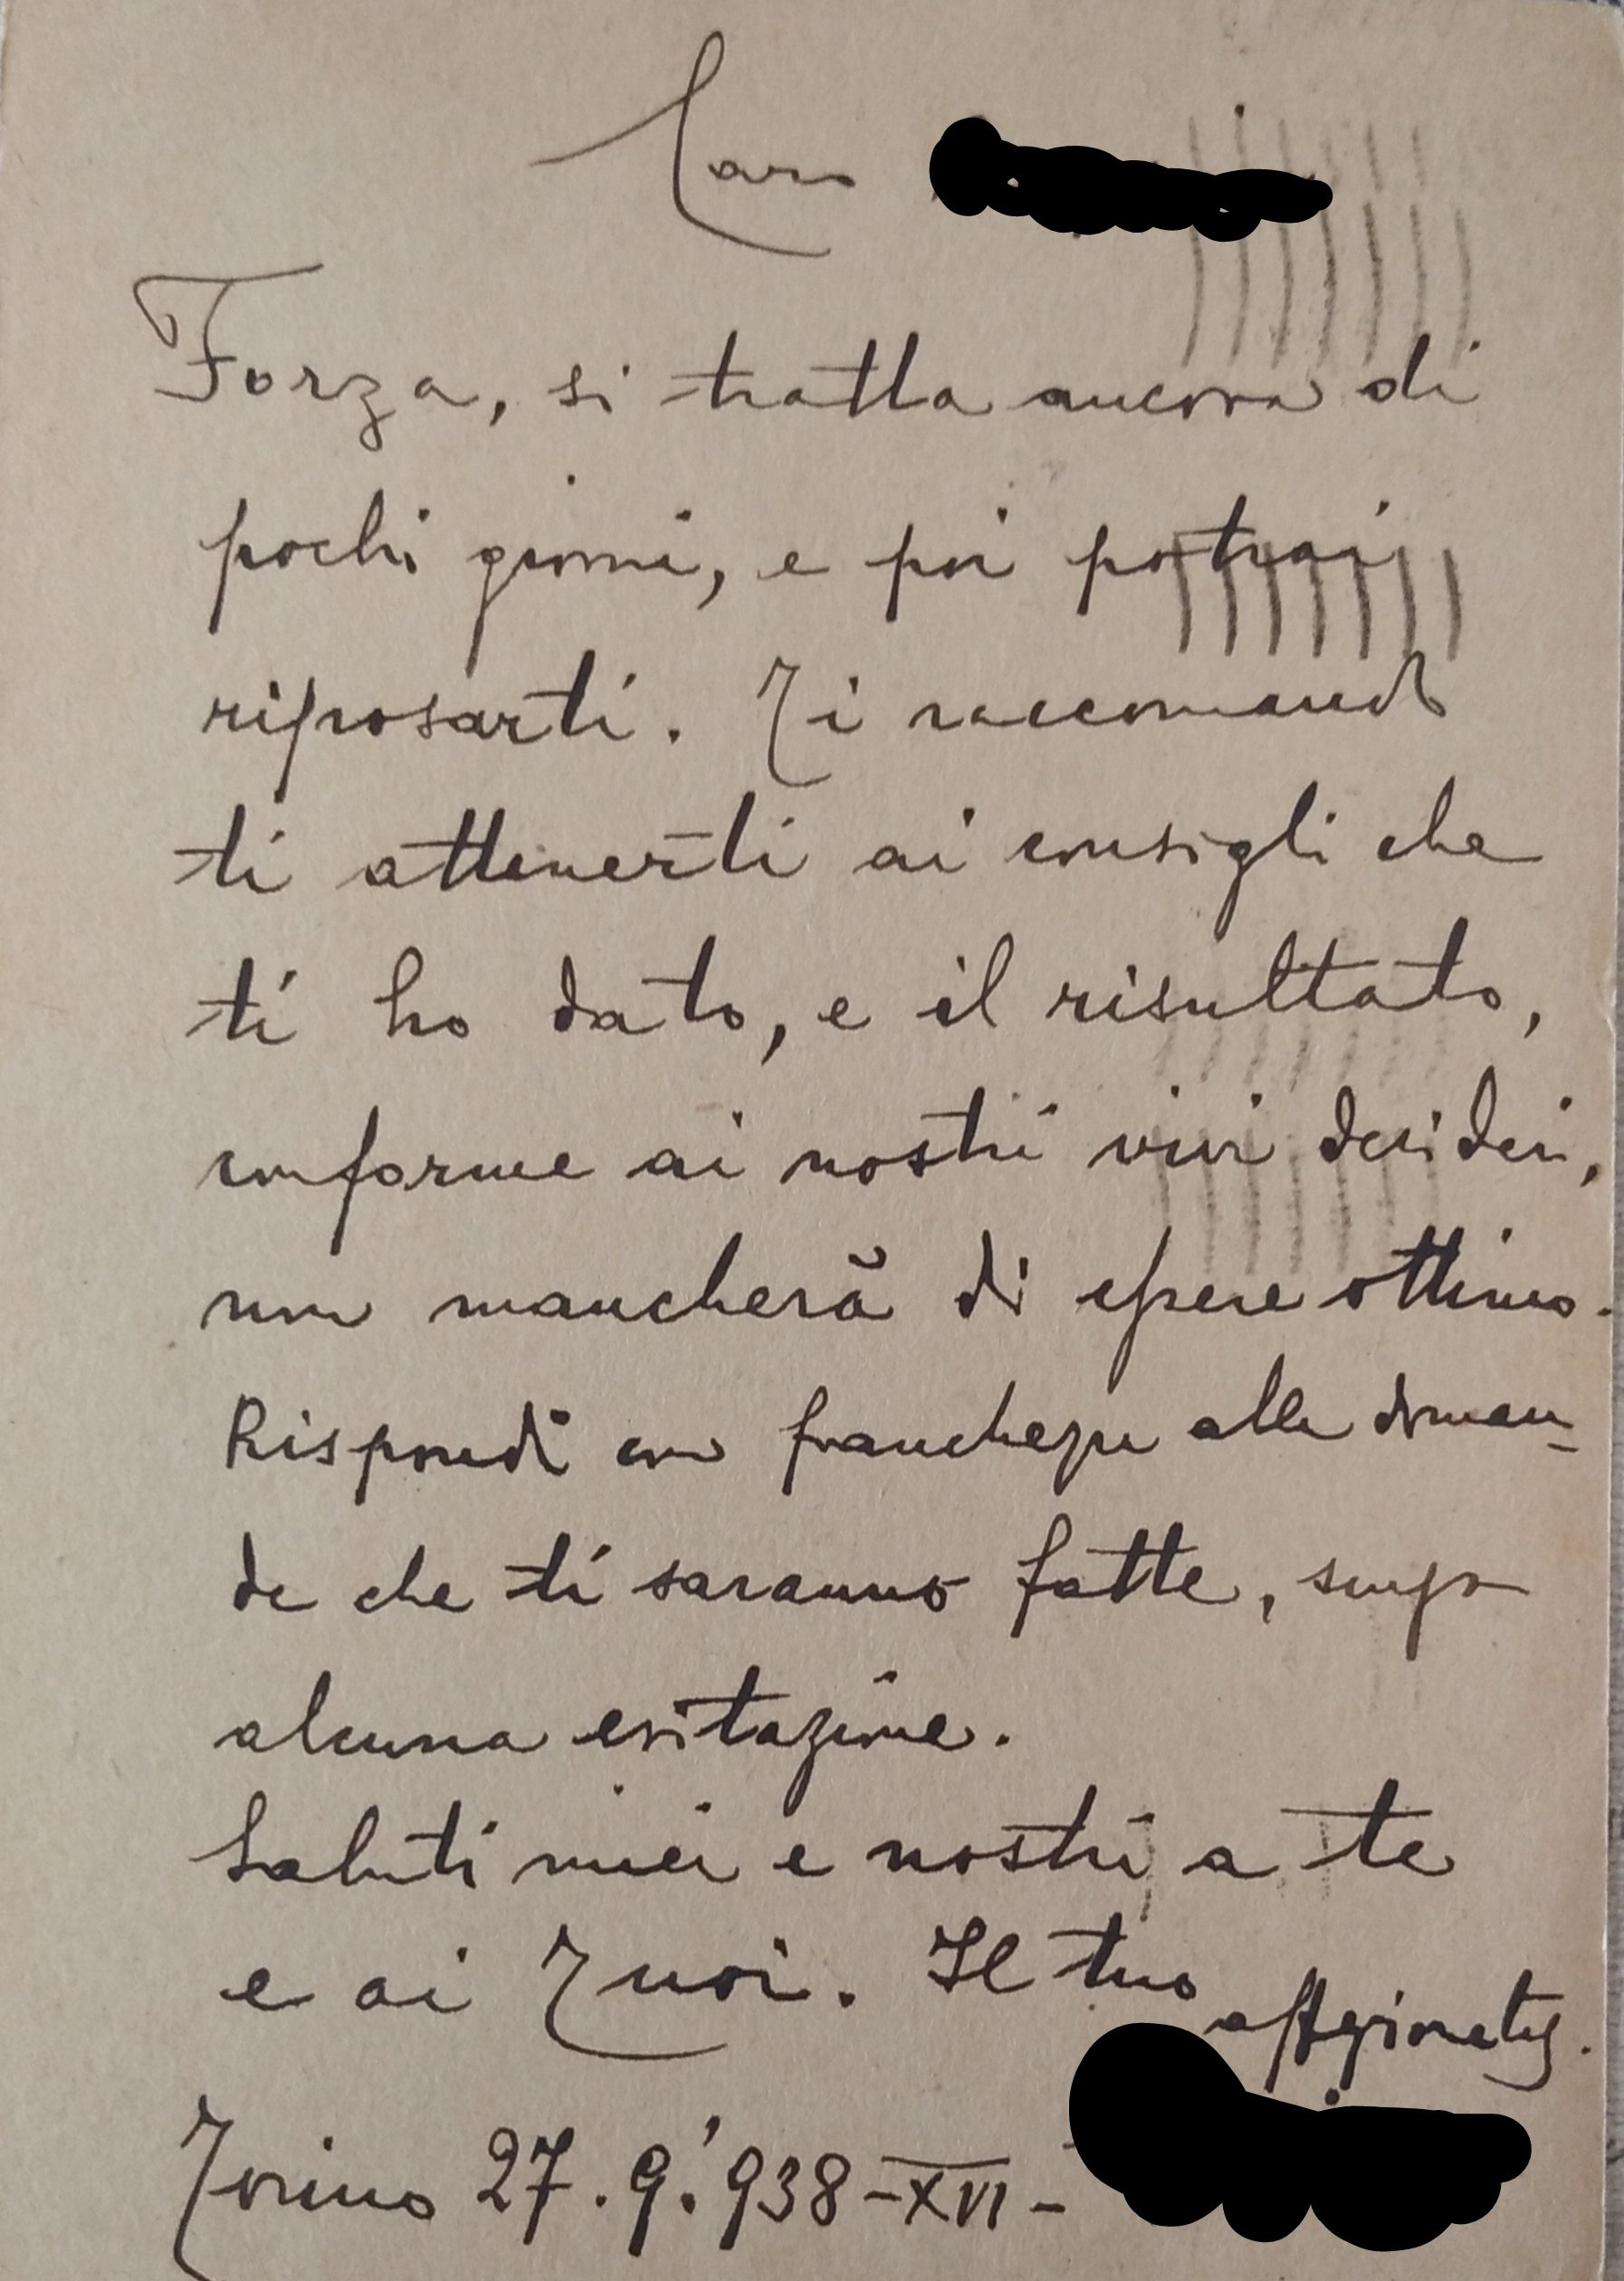 Caro
Forza, si tratta ancora di
pochi giorni, e poi potrai
riposarti. Ti raccomando
ti attenerti ai consigli che
ti ho dato, e il risultato,
conforme ai nostri vivi desideri,
non mancherà di essere ottimo.
Rispondi con franchezza alle doman-
de che ti saranno fatte, senza
alcuna esitazione.
Saluti miei e nostri a te
e ai Tuoi. Il tuo
Torino 27.9.'938-XVI-